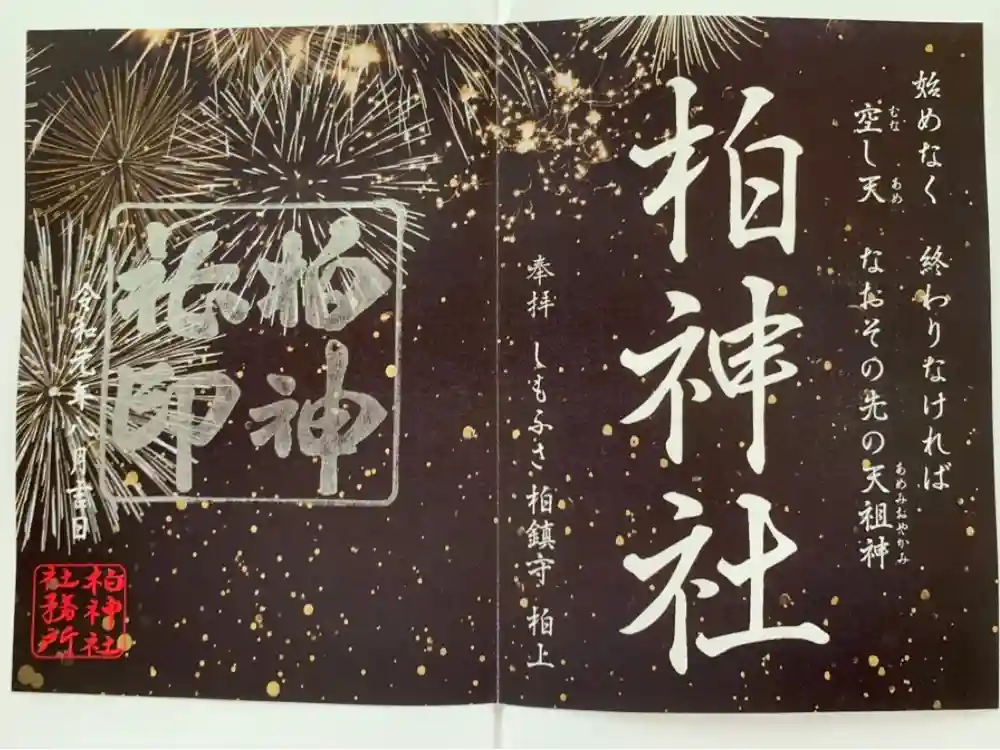 始めなく 終わりなければ
空し天 なおその先の天祖神
むな
あめ
あめみおやかみ
柏神社
奉拝 しもふさ 柏鎮守 柏上
柏神
社印
令和元年八月吉日
柏神社
社務所